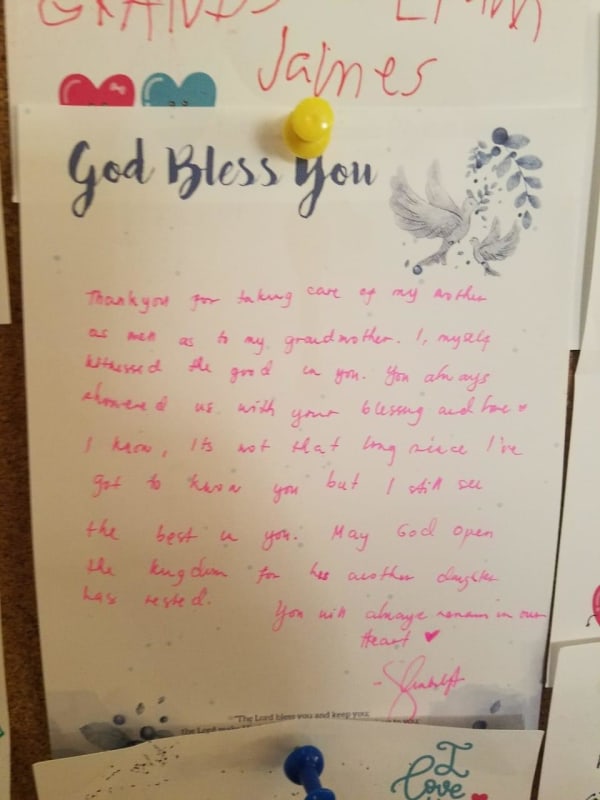 James
God Bless You
Thankyou for taking care of my mother
as well as to my grandmother. I, myself
witnessed the good in you. You always
showered us with your blessing and love
I know, its not that long since I've
got to know you but I still see
the best in you. May God open
the kingdom for his another daughter
has rested. You will always remain in our
Heart
"The Lord bless you and keep you;
the Lord make
to you;
I
love